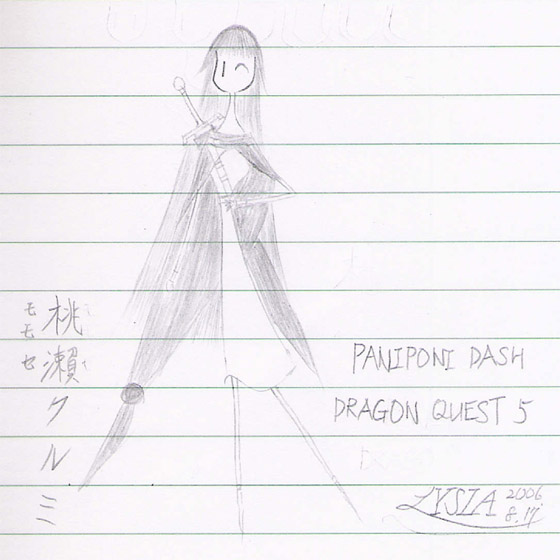 桃瀬クルミ
モモセ
PANIPONI DASH
DRAGON QUEST 5
LYSIA 2006.
8.17.